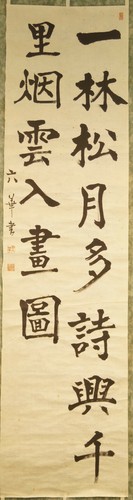 一林松月多詩興千
里烟雲入畫圖
六華書